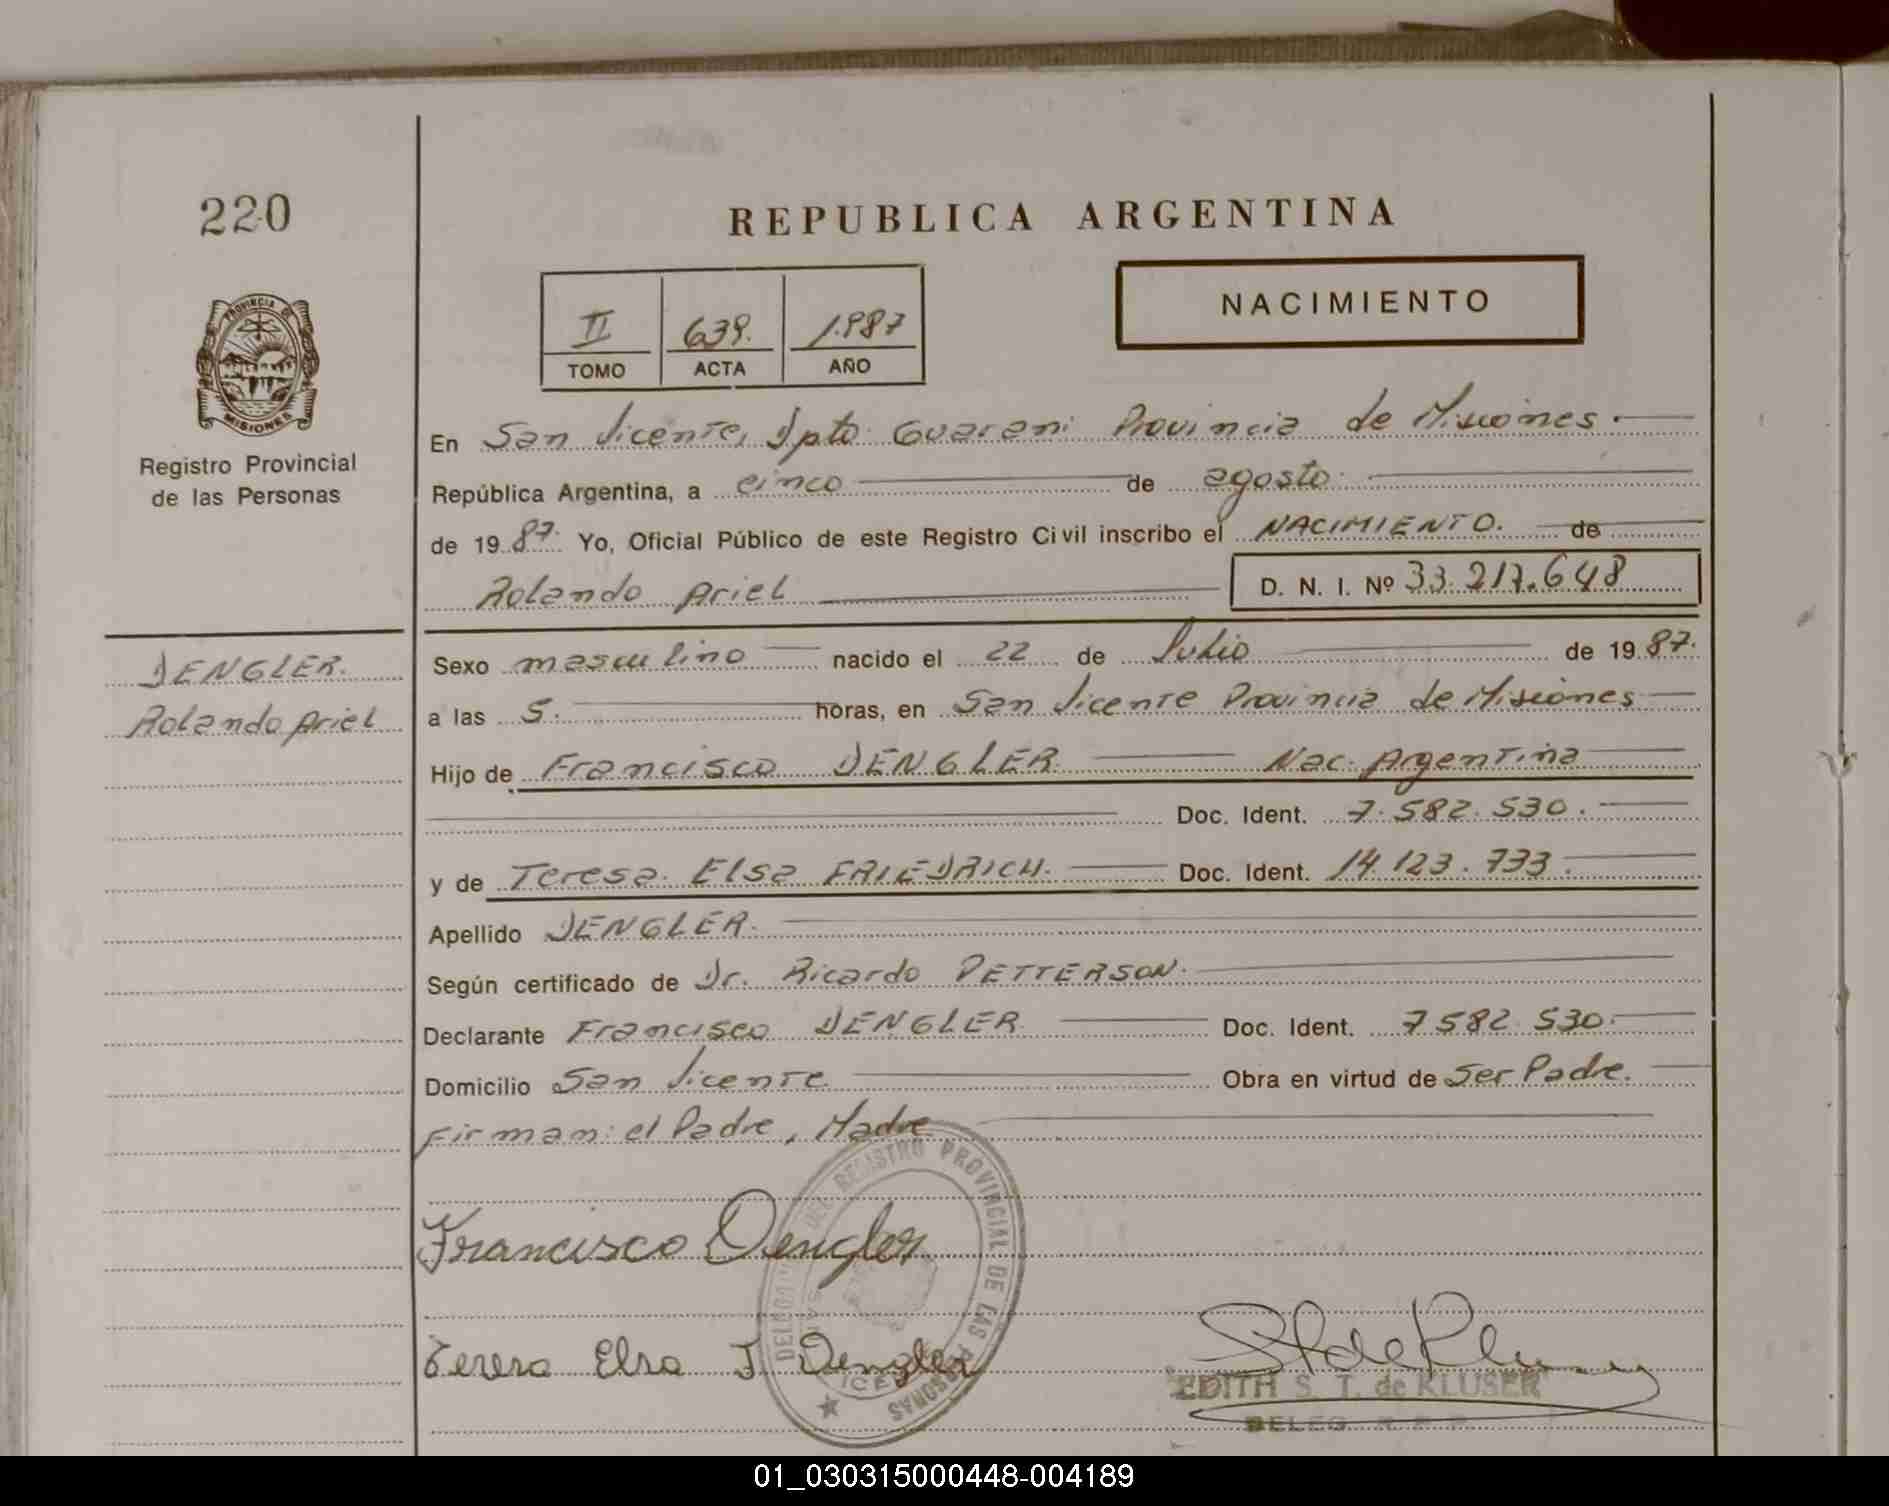 220
REPUBLICA ARGENTINA
II 639. 1.987
TOMO ACTA AÑO
NACIMIENTO
PROVINCIA DE
MISIONES
Registro Provincial
de las Personas
En San Vicente, Dpto Guarani Provincia de Misiones.
República Argentina, a cinco de agosto.
de 1987. Yo, Oficial Público de este Registro Civil inscribo el NACIMIENTO. de
Rolando Ariel D. N. I. Nº 33.217.648
DENGLER.
Rolando Ariel
Sexo masculino nacido el 22 de Julio de 1987.
a las 5. horas, en San Vicente Provincia de Misiones
Hijo de Francisco DENGLER Nac. Argentina
Doc. Ident. 7.582.530.
y de Teresa Elsa FRIEDRICH. Doc. Ident. 14.123.733.
Apellido DENGLER.
Según certificado de Dr. Ricardo PETTERSON.
Declarante Francisco DENGLER Doc. Ident. 7582.530.
Domicilio San Vicente Obra en virtud de Ser Padre.
Firman: el Padre, Madre
REGISTRO PROVINCIAL DE LAS PERSONAS
Francisco Dengler
Teresa Elsa F Dengler
EDITH S. T. de KLUSER
DELEG. R. P. P.
01_030315000448-004189